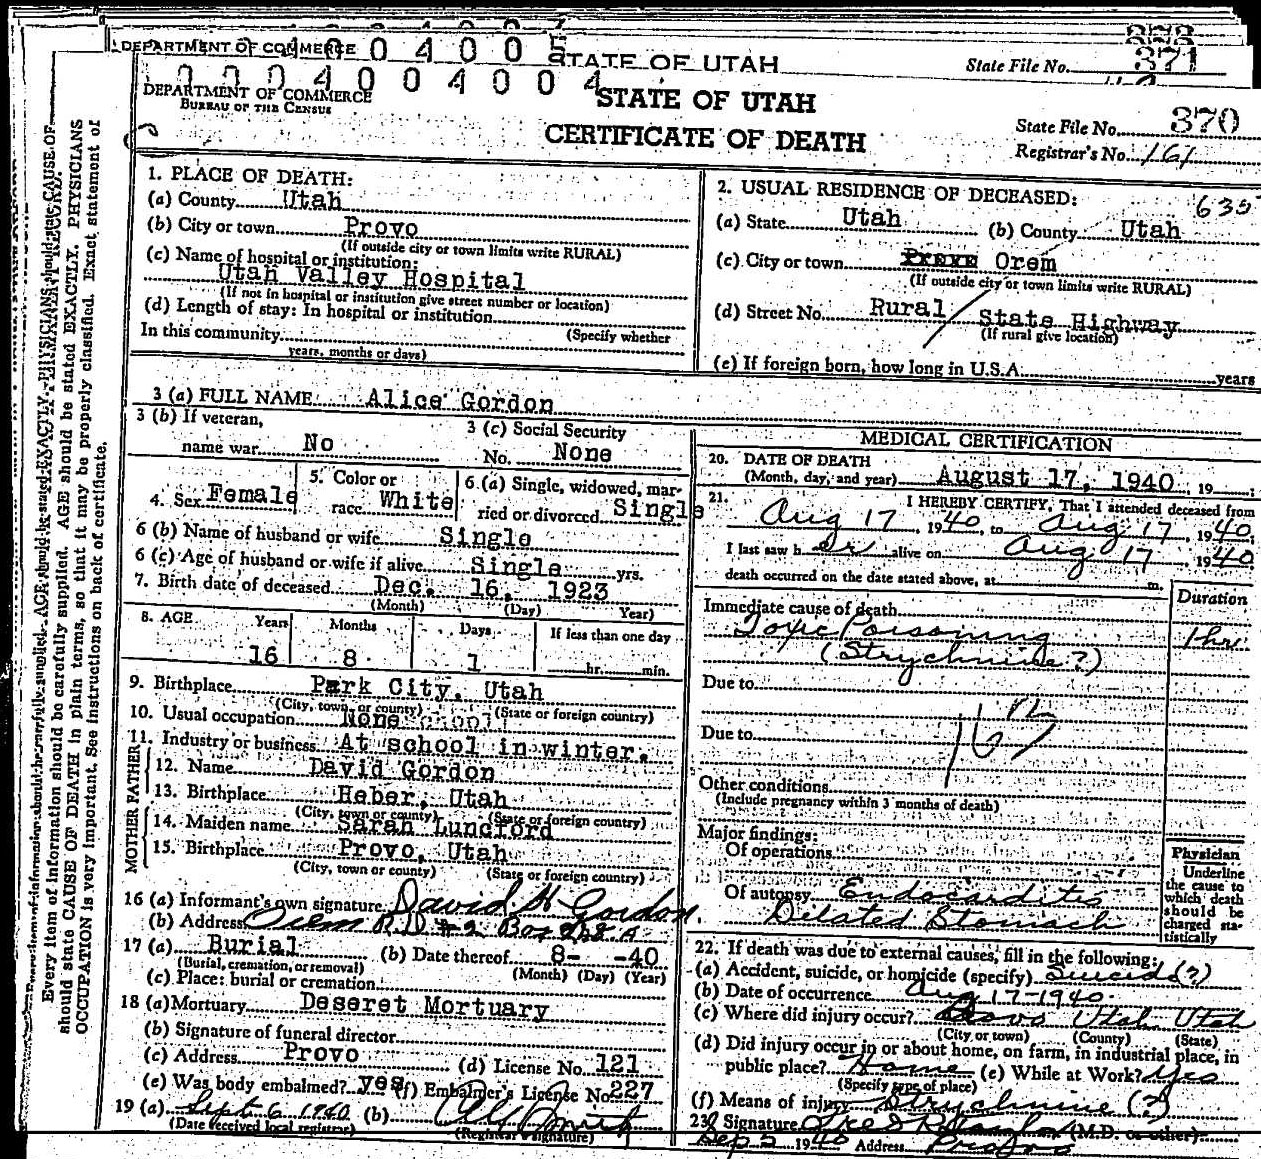 DEPARTMENT OF COMMERCE
0 0 0 4 0 0 4 0 0 5
STATE OF UTAH
State File No. 371
0 0 0 4 0 0 4 0 0 4
DEPARTMENT OF COMMERCE
BUREAU OF THE CENSUS
STATE OF UTAH
CERTIFICATE OF DEATH
State File No. 370
Registrar's No. 161
Every item of information should be carefully supplied. AGE should be stated EXACTLY. PHYSICIANS
should state CAUSE OF DEATH in plain terms, so that it may be properly classified. Exact statement of
OCCUPATION is very important. See instructions on back of certificate.
1. PLACE OF DEATH:
(a) County Utah
(b) City or town Provo
(If outside city or town limits write RURAL)
(c) Name of hospital or institution:
Utah Valley Hospital
(If not in hospital or institution give street number or location)
(d) Length of stay: In hospital or institution
(Specify whether
In this community
years, months or days)
2. USUAL RESIDENCE OF DECEASED:
635
(a) State Utah (b) County Utah
(c) City or town Provo Orem
(If outside city or town limits write RURAL)
(d) Street No. Rural / State Highway
(If rural give location)
(e) If foreign born, how long in U.S.A. years
3 (a) FULL NAME Alice Gordon
3 (b) If veteran,
name war No
3 (c) Social Security
No. None
4. Sex Female
5. Color or
race White
6 (a) Single, widowed, mar-
ried or divorced Single
6 (b) Name of husband or wife Single
6 (c) Age of husband or wife if alive Single yrs.
7. Birth date of deceased Dec. 16, 1923
(Month) (Day) Year)
8. AGE Years Months Days If less than one day
16 8 1 hr. min.
9. Birthplace Park City, Utah
(City, town, or county) (State or foreign country)
10. Usual occupation None
11. Industry or business At school in winter.
FATHER
12. Name David Gordon
13. Birthplace Heber, Utah
(City, town or county) (State or foreign country)
MOTHER
14. Maiden name Sarah Lunceford
15. Birthplace Provo, Utah
(City, town or county) (State or foreign country)
16 (a) Informant's own signature David H Gordon.
(b) Address Orem R.D #2 Box
17 (a) Burial (b) Date thereof 8- -40
(Burial, cremation, or removal) (Month) (Day) (Year)
(c) Place: burial or cremation
18 (a) Mortuary Deseret Mortuary
(b) Signature of funeral director
(c) Address Provo (d) License No. 121
(e) Was body embalmed? yes (f) Embalmer's License No. 227
19 (a) Sept 6 1940 (b)
(Date received local registrar) (Registrar's signature)
MEDICAL CERTIFICATION
20. DATE OF DEATH
(Month, day, and year) August 17, 1940, 19 ;
21. I HEREBY CERTIFY, That I attended deceased from
Aug 17, 1940, to Aug 17, 1940,
I last saw her alive on Aug 17 1940
death occurred on the date stated above, at m.
Duration
Immediate cause of death
Toxic Poisoning 1 hr.
(Strychnine?)
Due to
Due to
Other conditions
(Include pregnancy within 3 months of death)
Major findings:
Of operations
Of autopsy Endocarditis
Dilated Stomach
Physician
Underline
the cause to
which death
should be
charged sta-
tistically
22. If death was due to external causes, fill in the following:
(a) Accident, suicide, or homicide (specify) Suicide (?)
(b) Date of occurrence Aug 17-1940.
(c) Where did injury occur? Provo Utah Utah
(City or town) (County) (State)
(d) Did injury occur in or about home, on farm, in industrial place, in
public place? Home (e) While at Work? Yes
(Specify type of place)
(f) Means of injury Strychnine (?)
23. Signature (M.D. or other)
Sep 5 1940 Address Provo